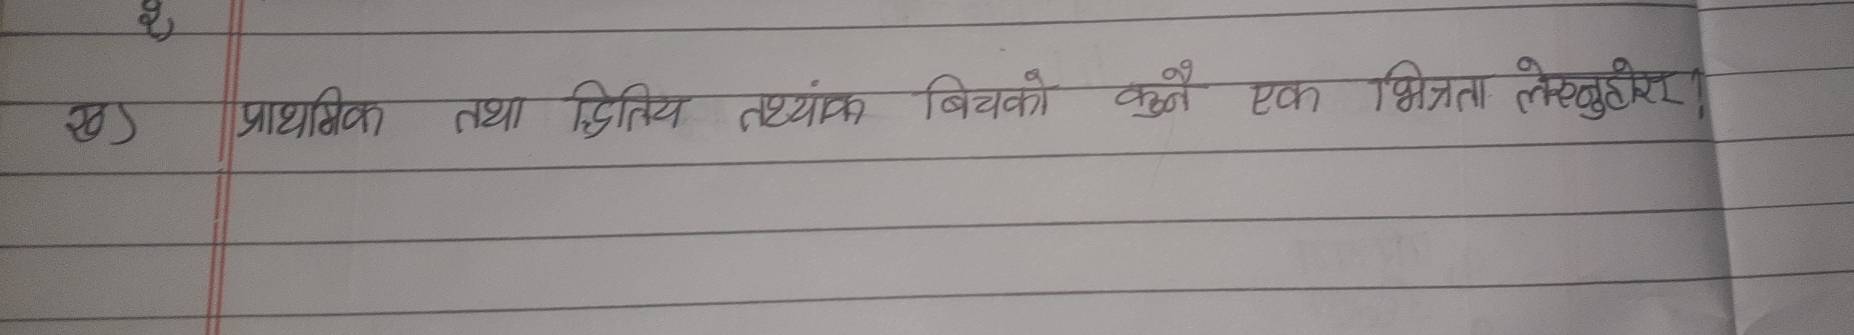 २)
ख) प्राथमिक तथा द्वितिय तथ्यांक बिचको कुनै एक भिन्नता लेख्नुहोस ।